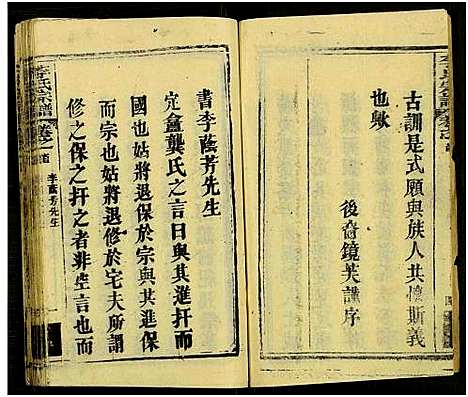 古訓是式願與族人共懷斯義
也歟
後裔鏡芙謹序
書李蔭芳先生
定盦龔氏之言曰與其進扞而
國也姑將退保於宗與其進保
而宗也姑將退修於宅夫所謂
修之保之扞之者非空言也而
李氏宗譜
李蔭芳先生